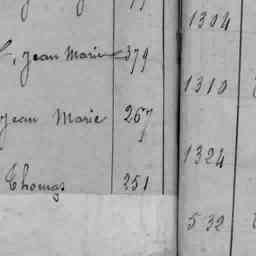 1304
Jean Marie 379
1310
Jean Marie 267
1324
Thomas 251
532